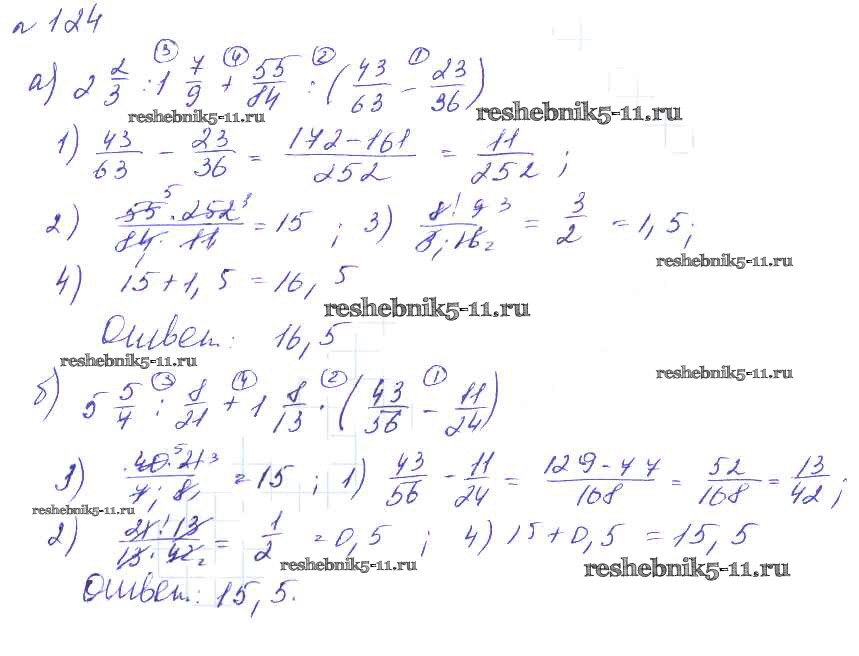 № 124
а) 2 2/3 : 1 7/9 + 55/84 : (43/63 - 23/36)
③ ④ ② ①
reshebnik5-11.ru reshebnik5-11.ru
1) 43/63 - 23/36 = (172-161)/252 = 11/252 ;
2) (55·252)/(84·11) = 15 ; 3) (8·9)/(3·16) = 3/2 = 1,5;
reshebnik5-11.ru
4) 15+1,5 = 16,5
reshebnik5-11.ru
Ответ: 16,5
reshebnik5-11.ru reshebnik5-11.ru
б) 5 5/7 : 8/21 + 1 8/13 · (43/56 - 11/24)
③ ④ ② ①
3) (40·21)/(7·8) = 15 ; 1) 43/56 - 11/24 = (129-77)/168 = 52/168 = 13/42 ;
reshebnik5-11.ru
2) (21·13)/(13·42) = 1/2 = 0,5 ; 4) 15+0,5 = 15,5
reshebnik5-11.ru reshebnik5-11.ru
Ответ: 15,5.